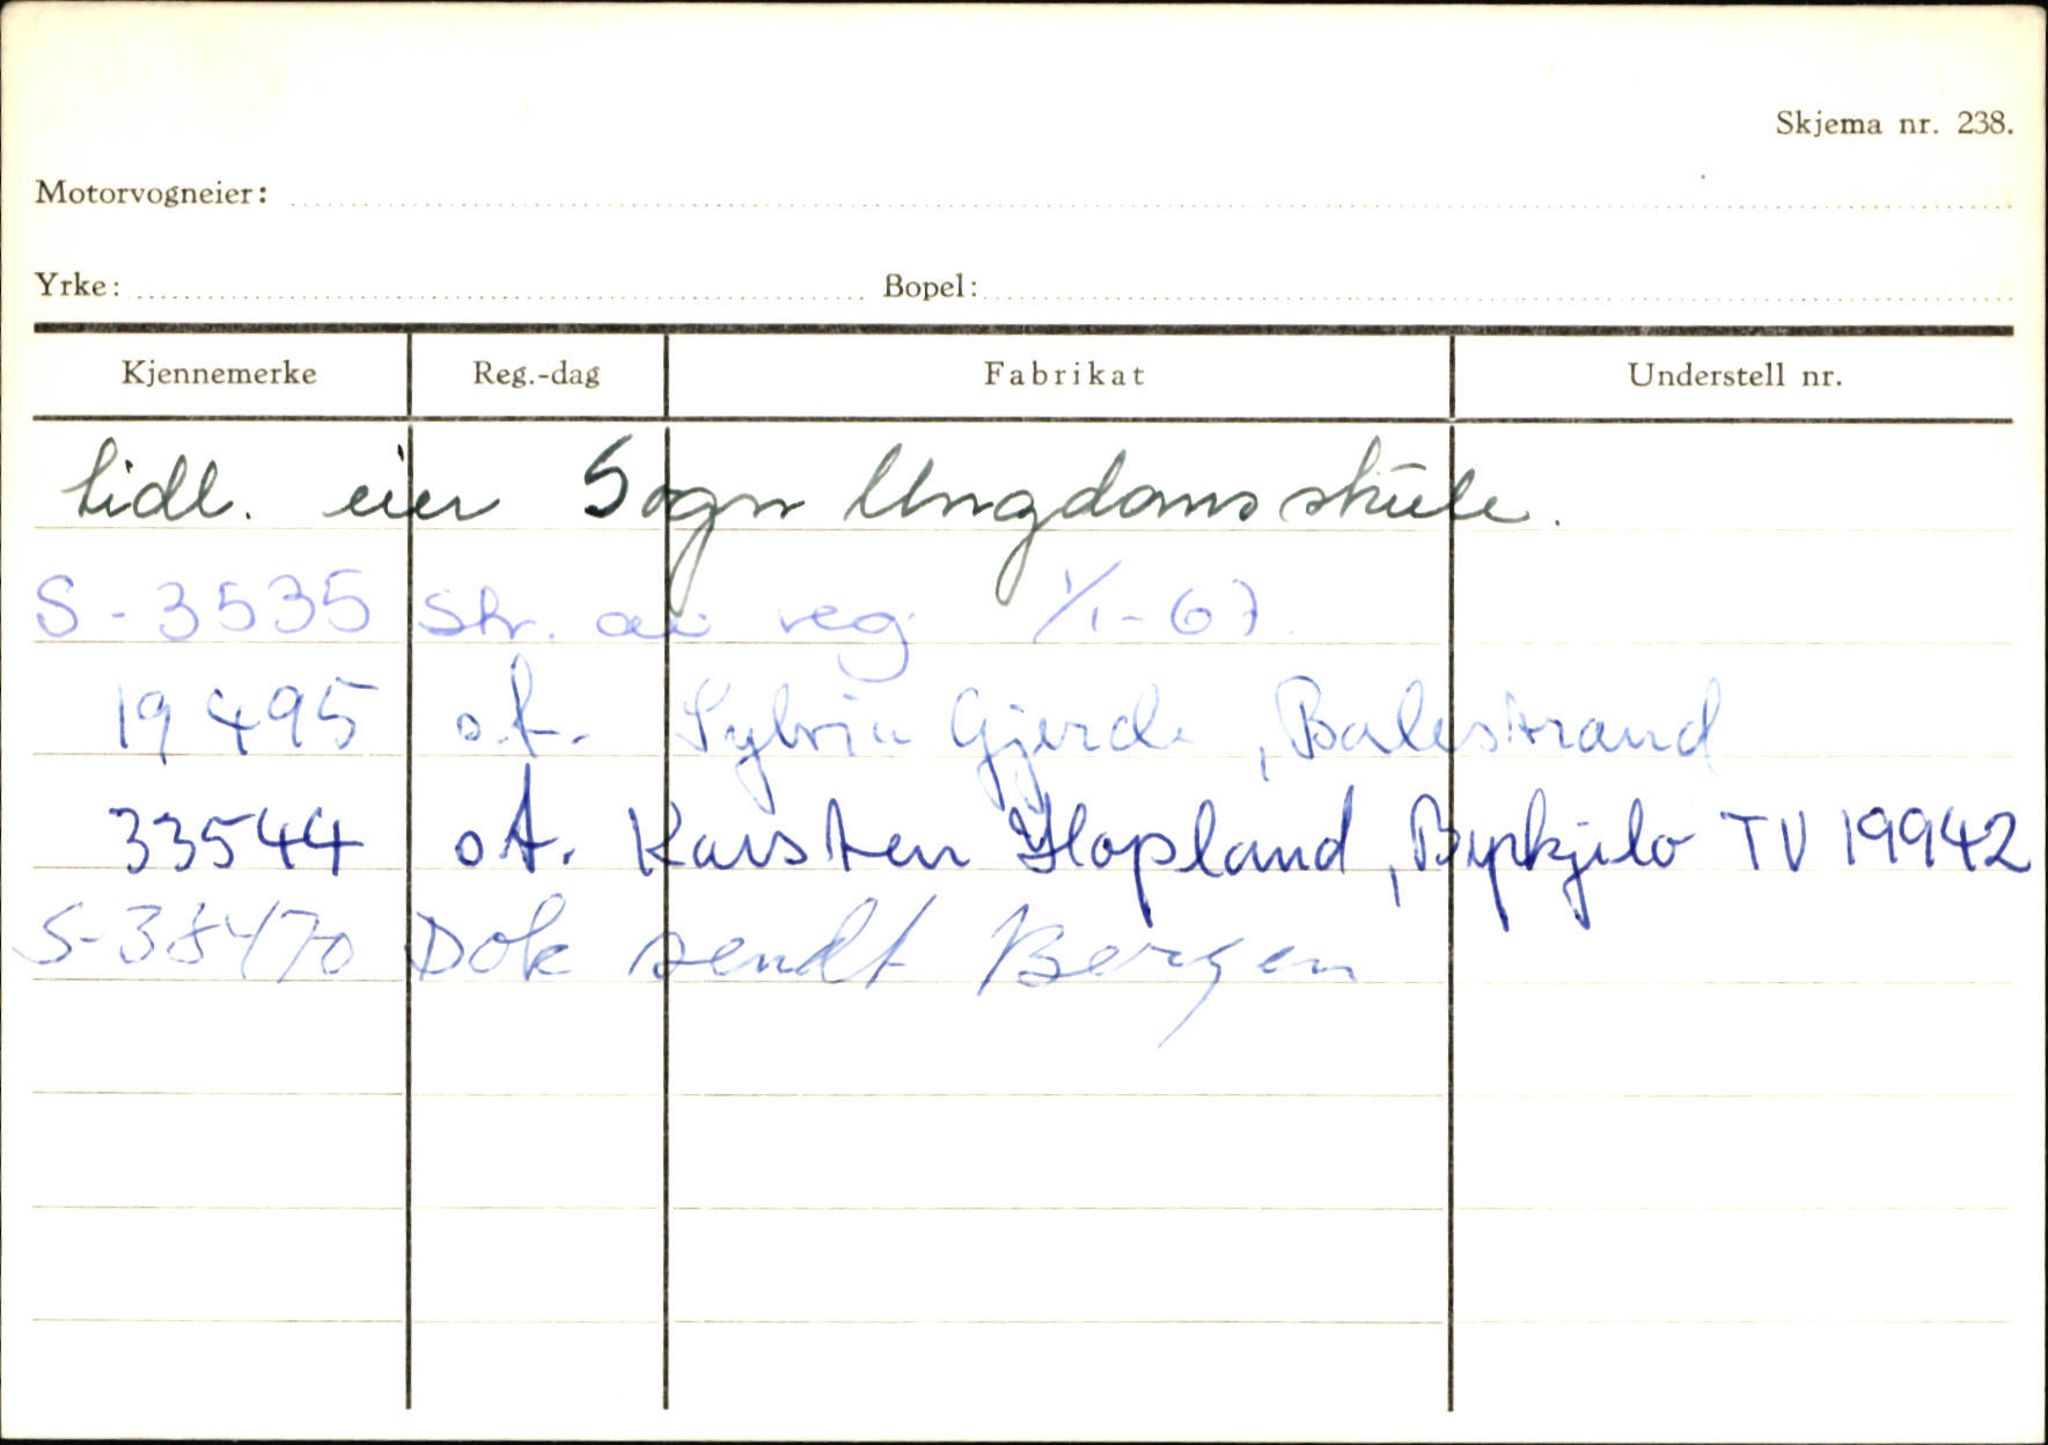 Skjema nr. 238.
Motorvogneier:
Yrke: Bopel:
Kjennemerke Reg.-dag Fabrikat Understell nr.
tidl. eier Sogn Ungdomsskule.
S-3535 Str. av reg 1/1-67.
19495 o.f. Sylvia Gjerde, Balestrand
33544 o.f. Karsten Hopland, Byrkjelo TV 19942
S-38470 Dok sendt Bergen